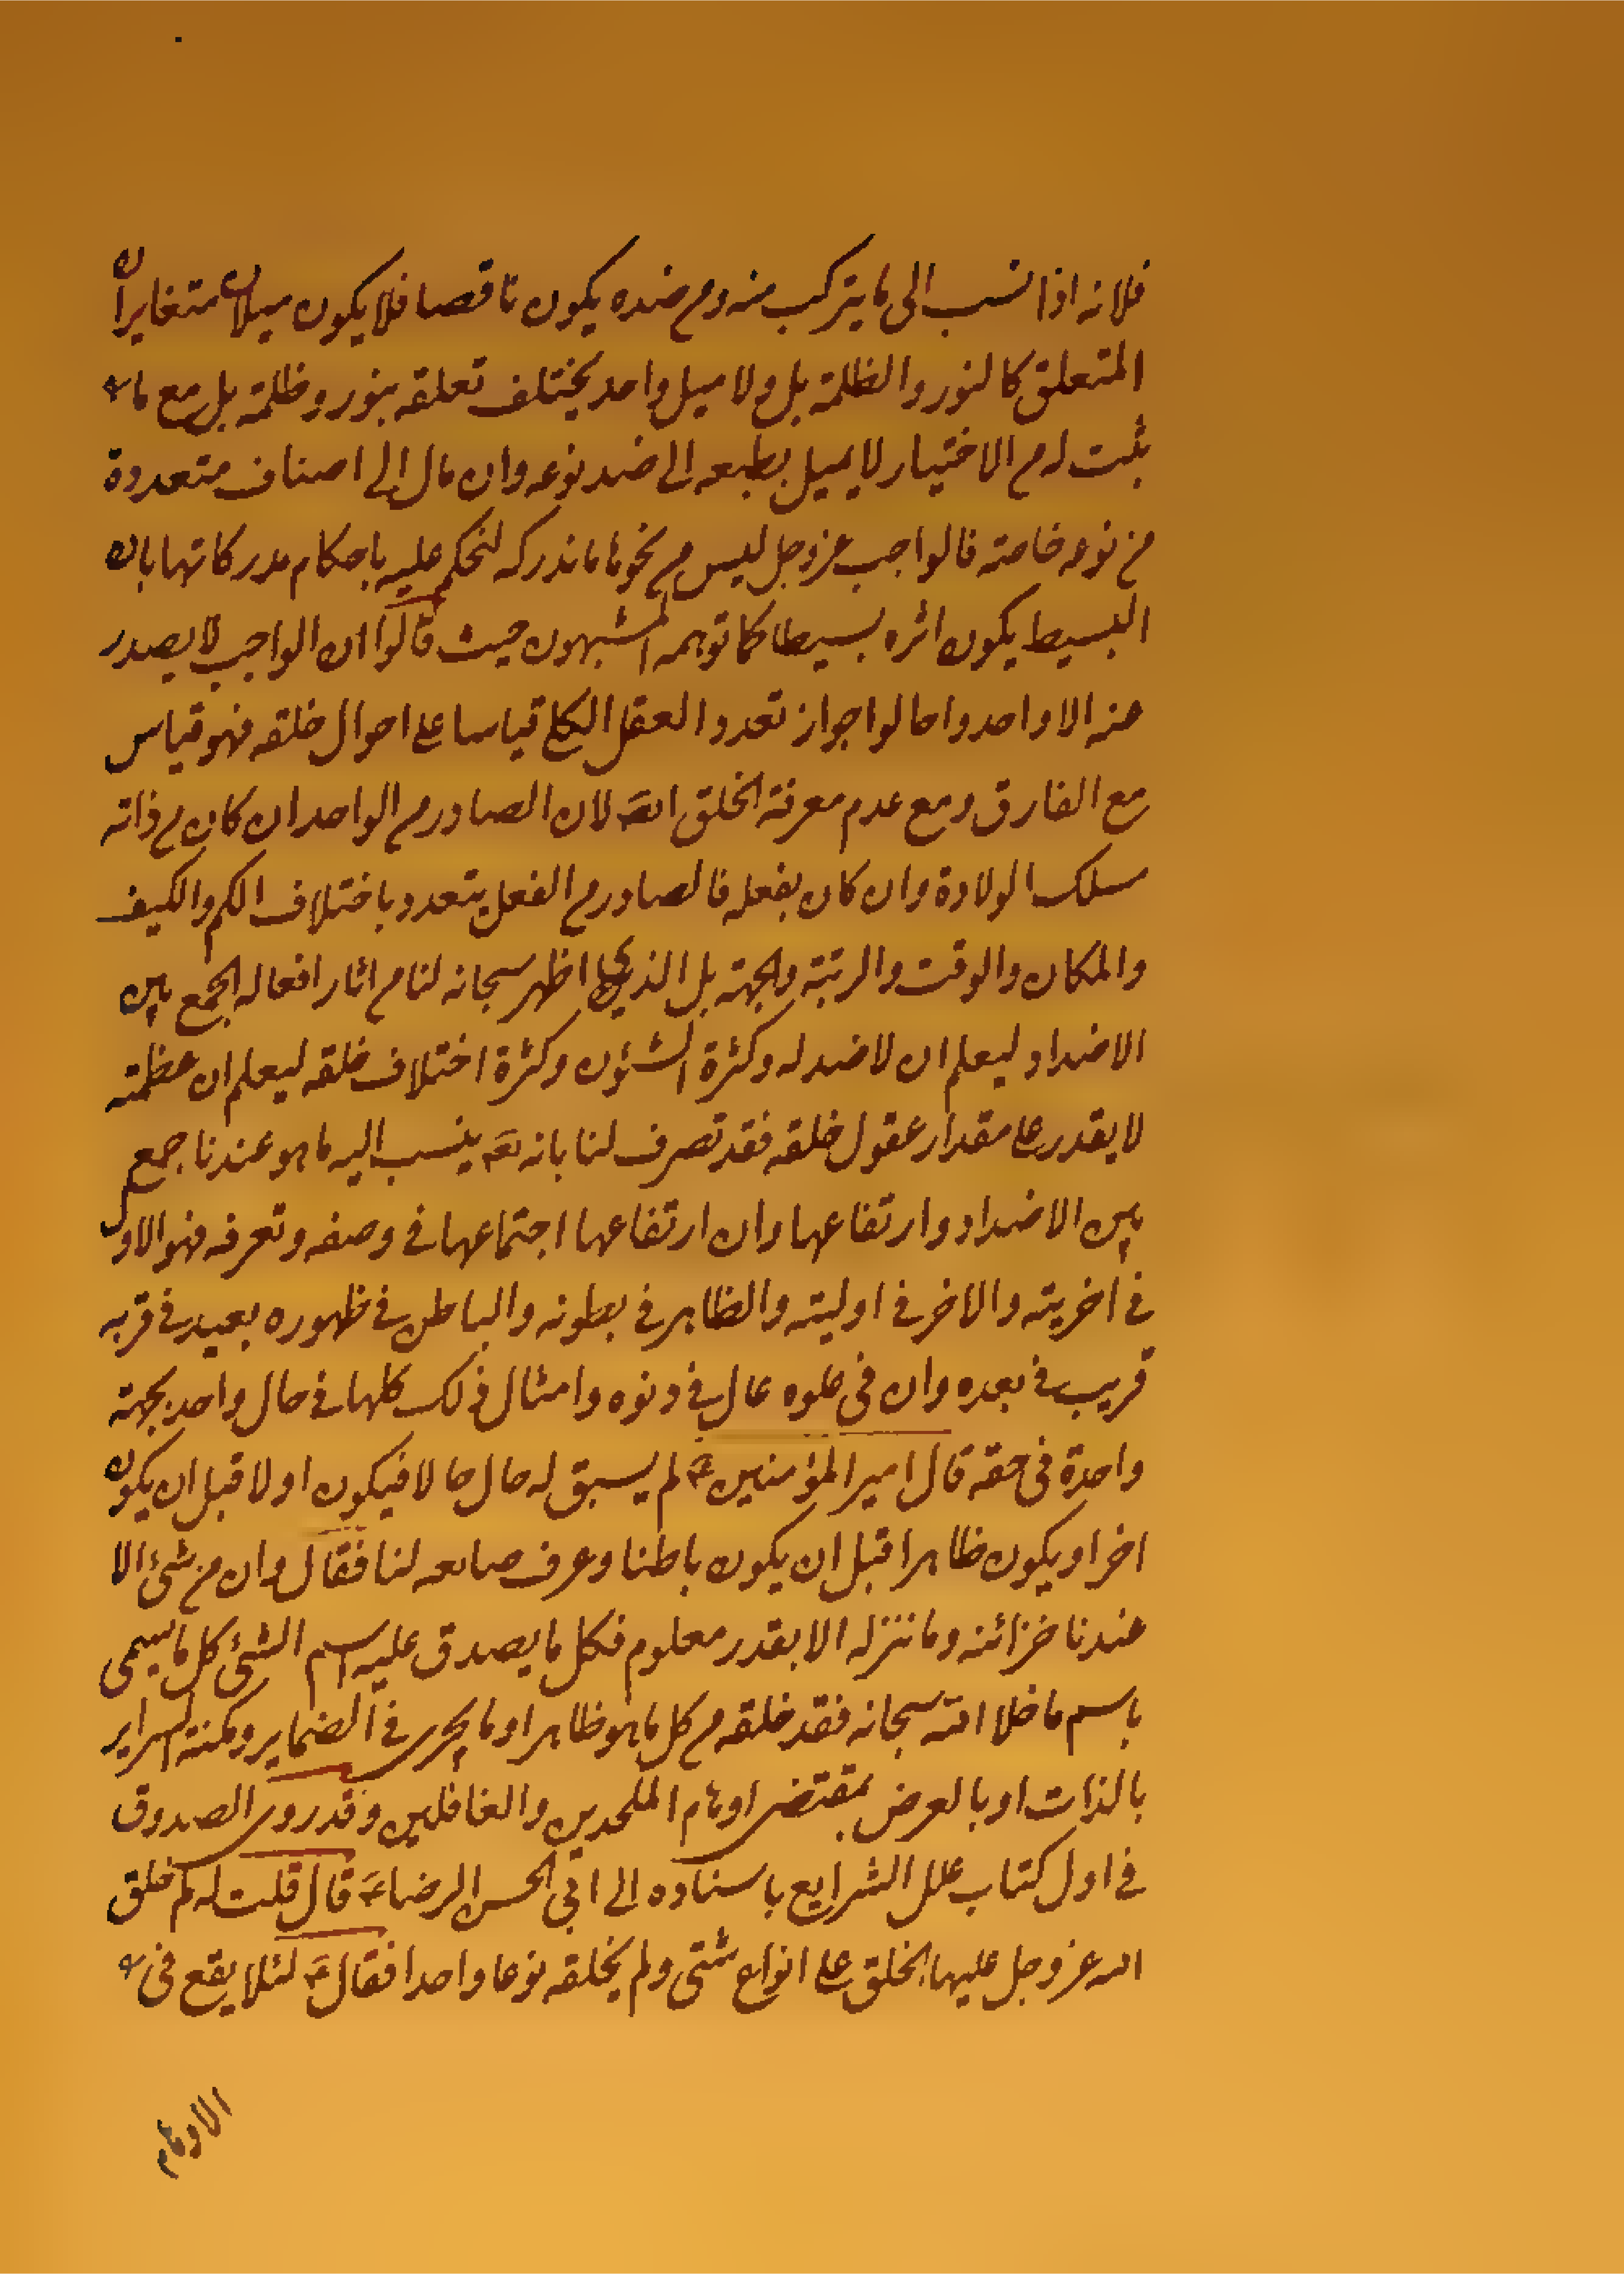 فلانه اذا نسب الى ما يتركب منه ومن ضده يكون ناقصا فلا يكون ميلان متغايران
المتعلق كالنور والظلمة بل ولا ميل واحد يختلف تعلقه بنور وظلمة بل مع ما
ثبت له من الاختيار لا يميل بطبعه الى ضد نوعه وان مال الى اصناف متعددة
من نوعه خاصة فالواجب عز وجل ليس من نحو ما ندركه لنحكم عليه باحكام مدركاتها بان
البسيط يكون اثره بسيطا كما توهمه المشبهون حيث قالوا ان الواجب لا يصدر
عنه الا واحد واحالوا جواز تعدد العقل الكلى قياسا على احوال خلقه فهو قياس
مع الفارق ومع عدم معرفة الخلق الله لان الصادر من الواحد ان كان من ذاته
سلك الولادة وان كان بفعله فالصادر من الفعل يتعدد باختلاف الكم والكيف
والمكان والوقت والرتبة والجهة بل الذى اظهر سبحانه لنا من اثار افعاله الجمع بين
الاضداد ليعلم ان لا ضد له وكثرة الشؤن وكثرة اختلاف خلقه ليعلم ان عظمته
لا يقدر على مقدار عقول خلقه فقد تصرف لنا بانه تع ينسب اليه ما هو عندنا جمع
بين الاضداد وارتفاعها وان ارتفاعها اجتماعها فى وصفه وتعرفه فهو الاول
فى اخريته والاخر فى اوليته والظاهر فى بطونه والباطن فى ظهوره بعيد فى قربه
قريب فى بعده وان فى علوه عال فى دنوه وامثال ذلك كلها فى حال واحد بجهة
واحدة فى حقه قال امير المؤمنين ع لم يسبق له حال حالا فيكون اولا قبل ان يكون
اخرا ويكون ظاهرا قبل ان يكون باطنا وعرف صانعه لنا فقال وان من شئ الا
عندنا خزائنه وما ننزله الا بقدر معلوم فكل ما يصدق عليه اسم الشئ كل ما يسمى
باسم ما خلا الله سبحانه فقد خلقه من كل ما هو ظاهر او ما يجرى فى الضماير ومكنته السراير
بالذات او بالعرض بمقتضى اوهام الملحدين والغافلين وقد روى الصدوق
فى اول كتاب علل الشرايع باسناده الى ابى الحسن الرضا ع قال قلت له لم خلق
الله عز وجل عليها الخلق على انواع شتى ولم يخلقه نوعا واحدا فقال ع لئلا يقع فى
الاوهام